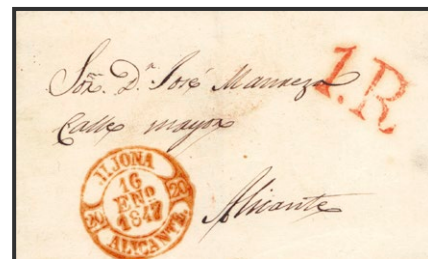 Sor. Dn. José
1.R
Calle mayor
JIJONA
16
ENO
1847
20 20
ALICANTE.
Alicante